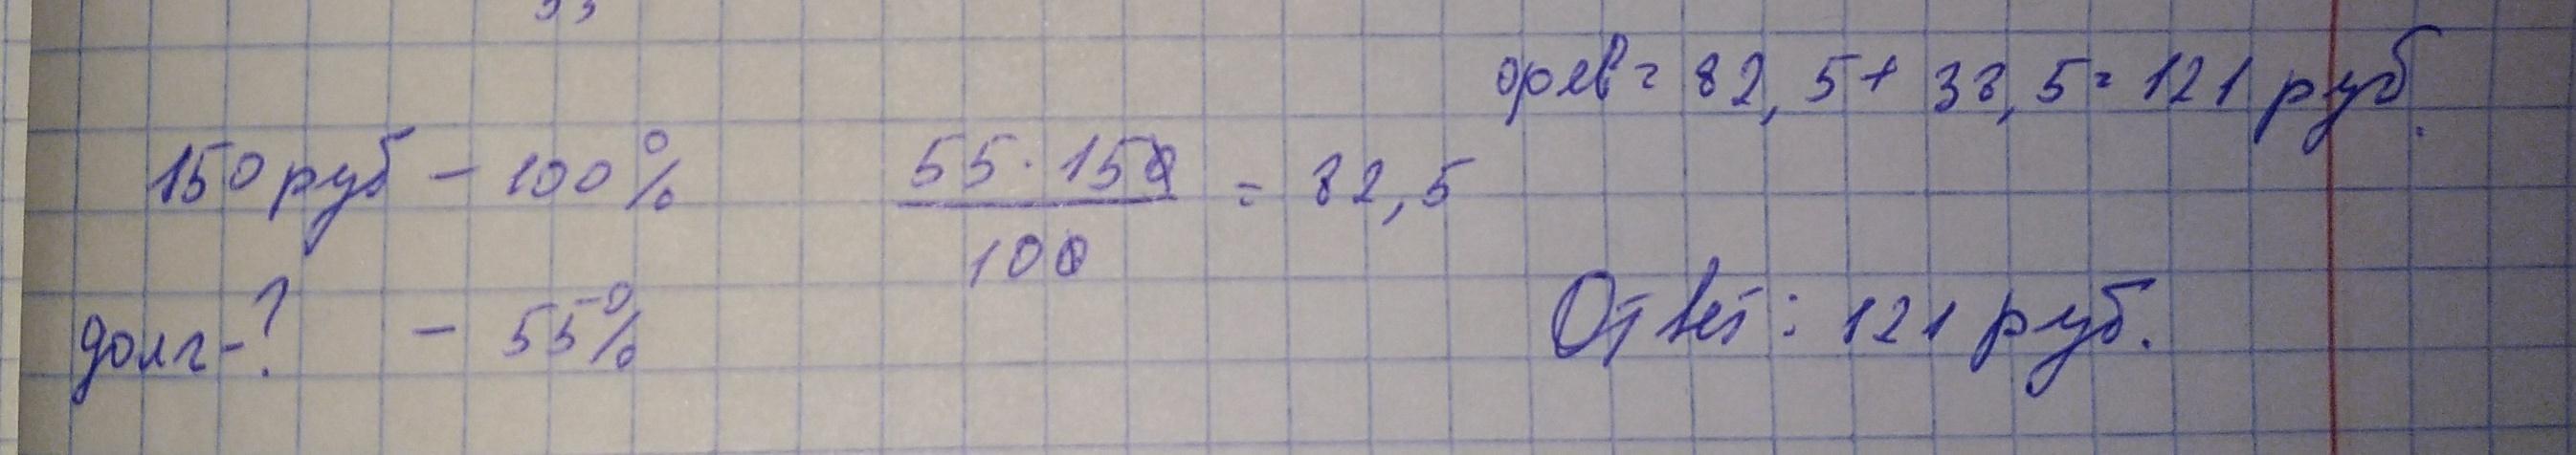 орев = 82,5 + 38,5 = 121 руб.
150 руб – 100% 55 · 150 / 100 = 82,5
долг - ? – 55%
Ответ: 121 руб.